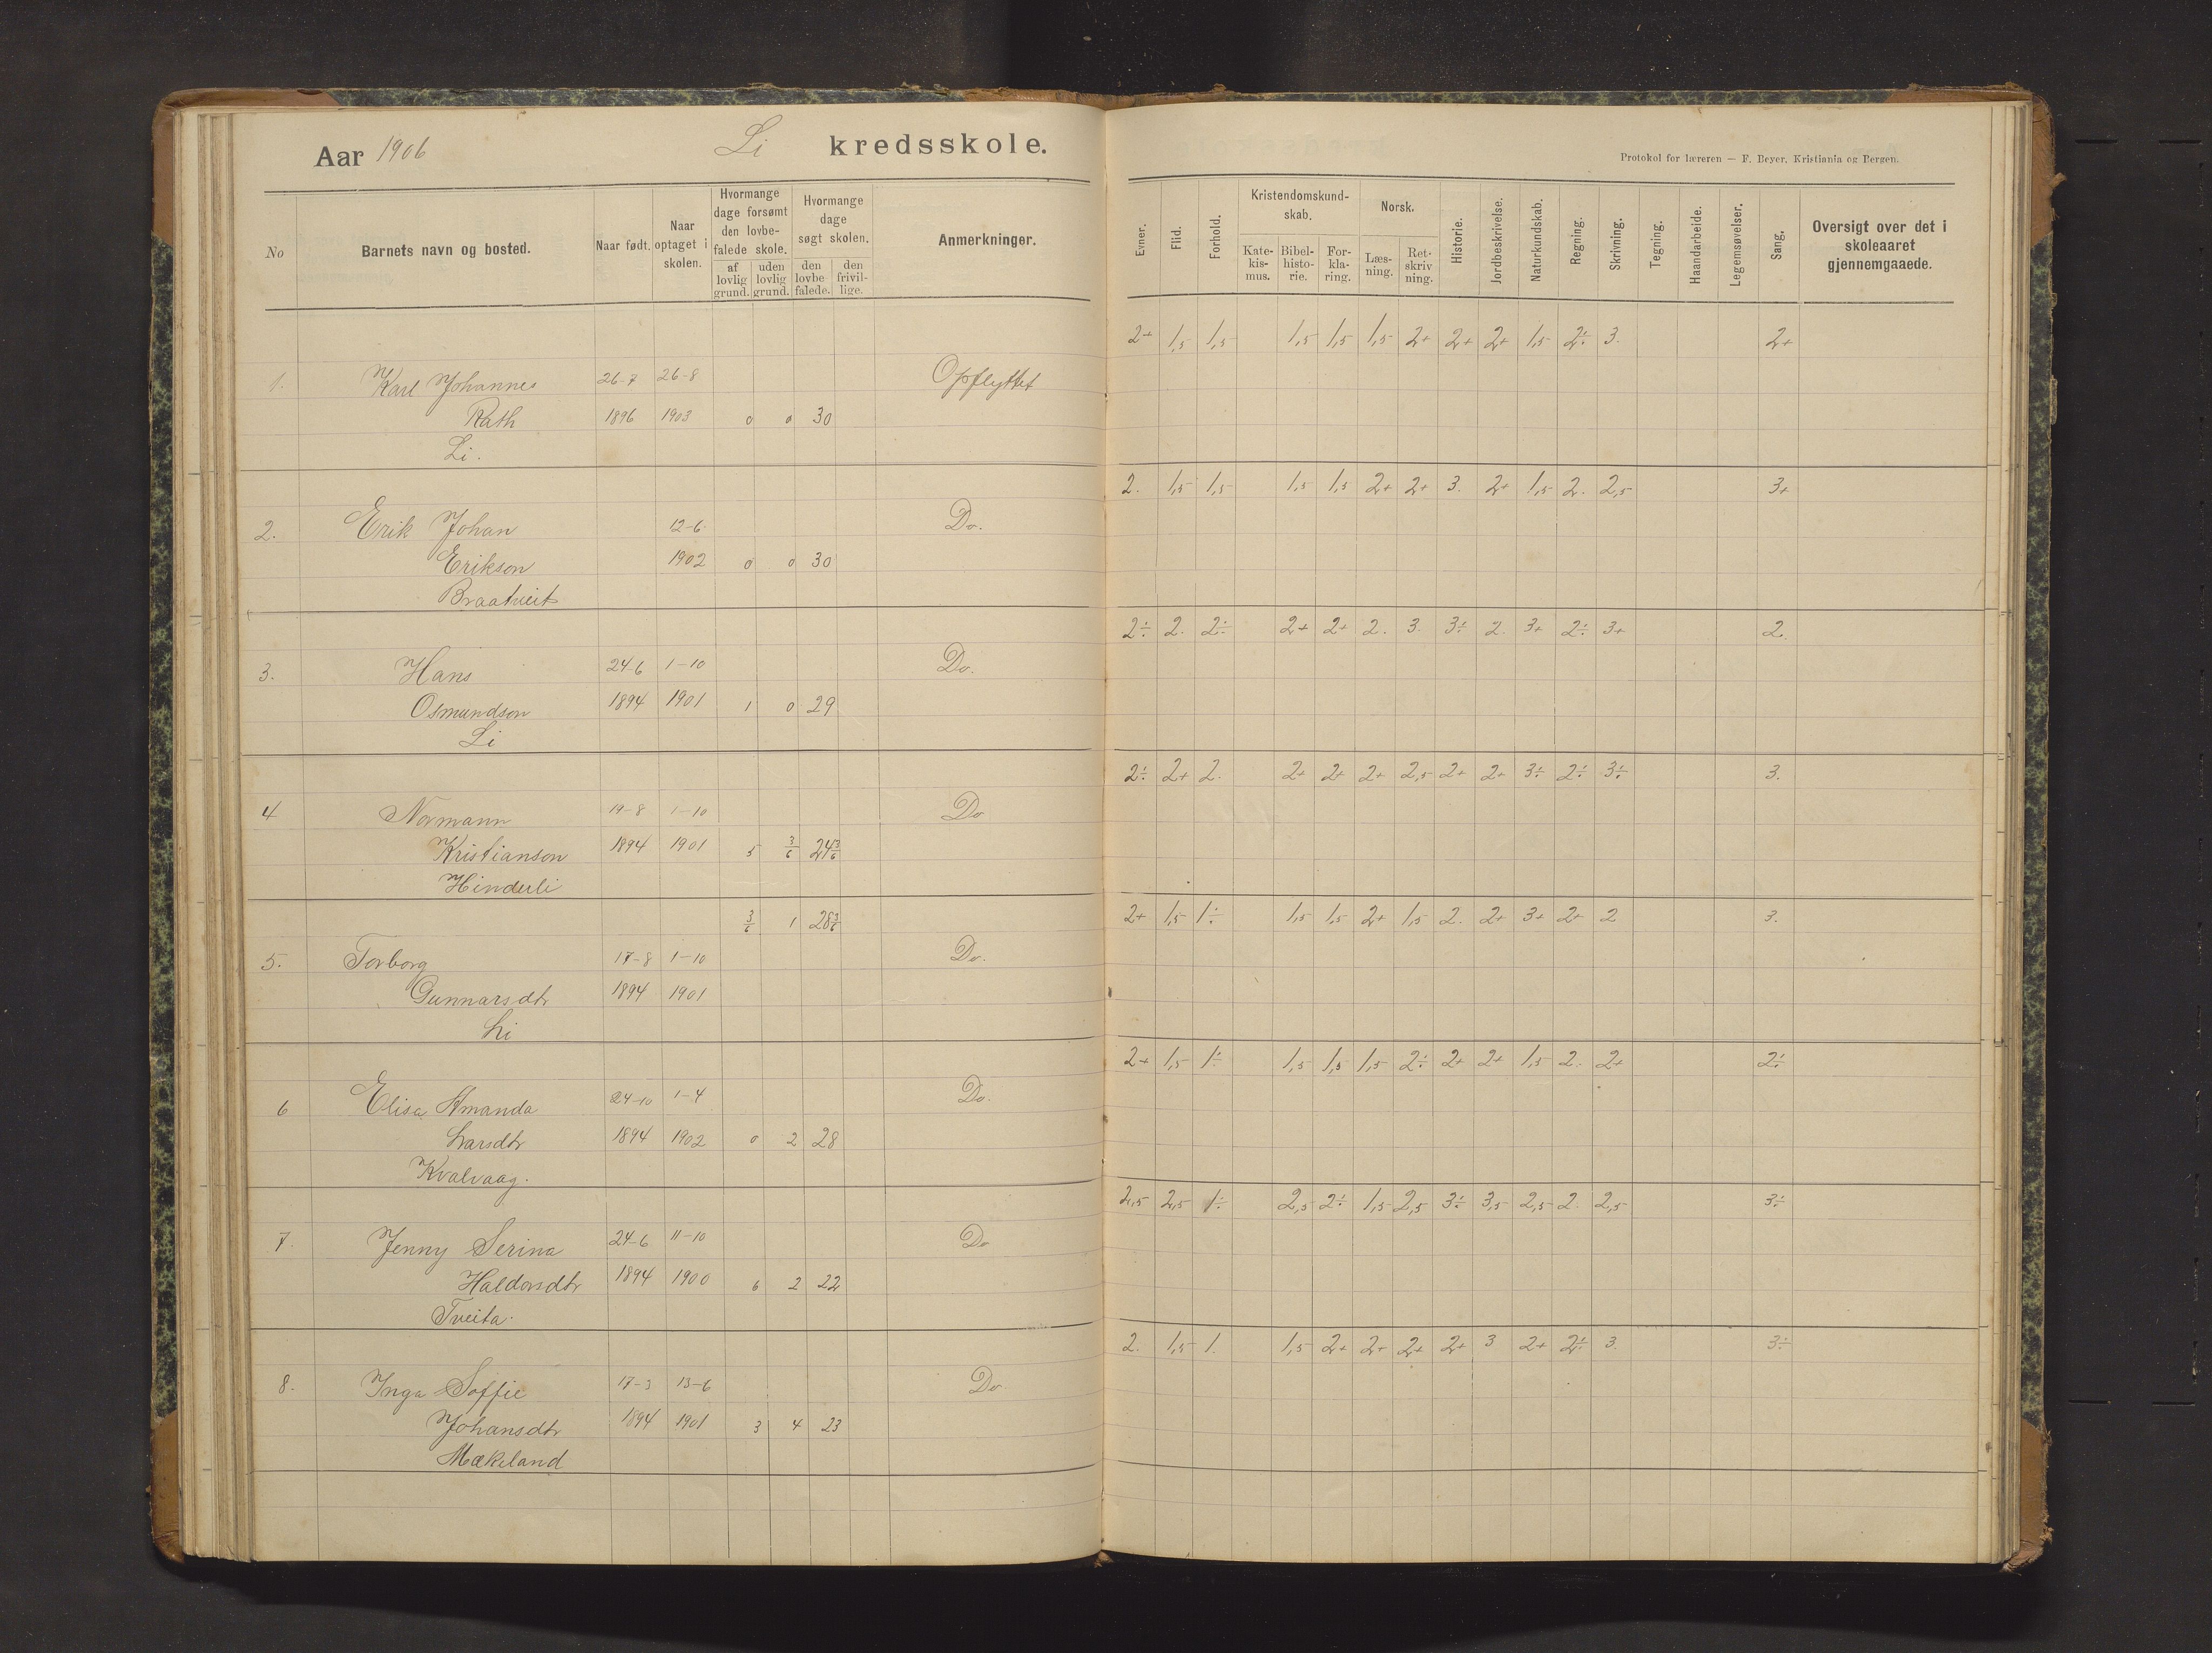 Aar 1906 Li kredsskole.
Protokol for læreren — F. Beyer. Kristiania og Bergen.
No
Barnets navn og bosted.
Naar født.
Naar optaget i skolen.
Hvormange dage forsømt den lovbefalede skole.
af lovlig grund.
uden lovlig grund.
Hvormange dage søgt skolen.
den lovbefalede.
den frivillige.
Anmerkninger.
Evner.
Flid.
Forhold.
Kristendomskundskab.
Katekismus.
Bibelhistorie.
Forklaring.
Norsk.
Læsning.
Retskrivning.
Historie.
Jordbeskrivelse.
Naturkundskab.
Regning.
Skrivning.
Tegning.
Haandarbeide.
Legemsøvelser.
Sang.
Oversigt over det i skoleaaret gjennemgaaede.
2+ 1,5 1,5 1,5 1,5 1,5 2+ 2+ 2+ 1,5 2÷ 3. 2+
1. Karl Johannes 26-7 26-8 Opflyttet
Rath 1896 1903 0 0 30
Li.
2. 1,5 1,5 1,5 1,5 2+ 2+ 3. 2+ 1,5 2. 2,5 3+
2. Erik Johan 12-6. Do.
Erikson 1902 0 0 30
Braatveit
2÷ 2. 2÷ 2+ 2+ 2. 3. 3÷ 2. 3+ 2÷ 3+ 2.
3. Hans 24-6 1-10 Do.
Osmundson 1894 1901 1 0 29
Li
2÷ 2+ 2. 2+ 2+ 2+ 2,5 2+ 2+ 3÷ 2÷ 3÷ 3.
4 Normann 19-8 1-10 Do
Kristianson 1894 1901 5 3/6 24 3/6
Hinderli
3/6 1 28 3/6 2+ 1,5 1÷ 1,5 1,5 2+ 1,5 2. 2+ 3+ 2+ 2 3.
5. Torborg 17-8 1-10 Do.
Gunnarsdtr 1894 1901
Li
2+ 1,5 1÷ 1,5 1,5 1,5 2÷ 2+ 2+ 1,5 2. 2+ 2÷
6 Elisa Amanda 24-10 1-4 Do.
Larsdtr 1894 1902 0 2 28
Kvalvaag.
2,5 2,5 1÷ 2,5 2÷ 1,5 2,5 3÷ 3,5 2,5 2. 2,5 3÷
7. Jenny Serina 24-6 11-10 Do
Haldorsdtr 1894 1900 6 2 22
Tveita.
2. 1,5 1. 1,5 2+ 2+ 2+ 2+ 3 2+ 2÷ 3. 3÷
8. Inga Soffie 17-3 13-6 Do
Johansdtr 1894 1901 3 4 23
Mækeland